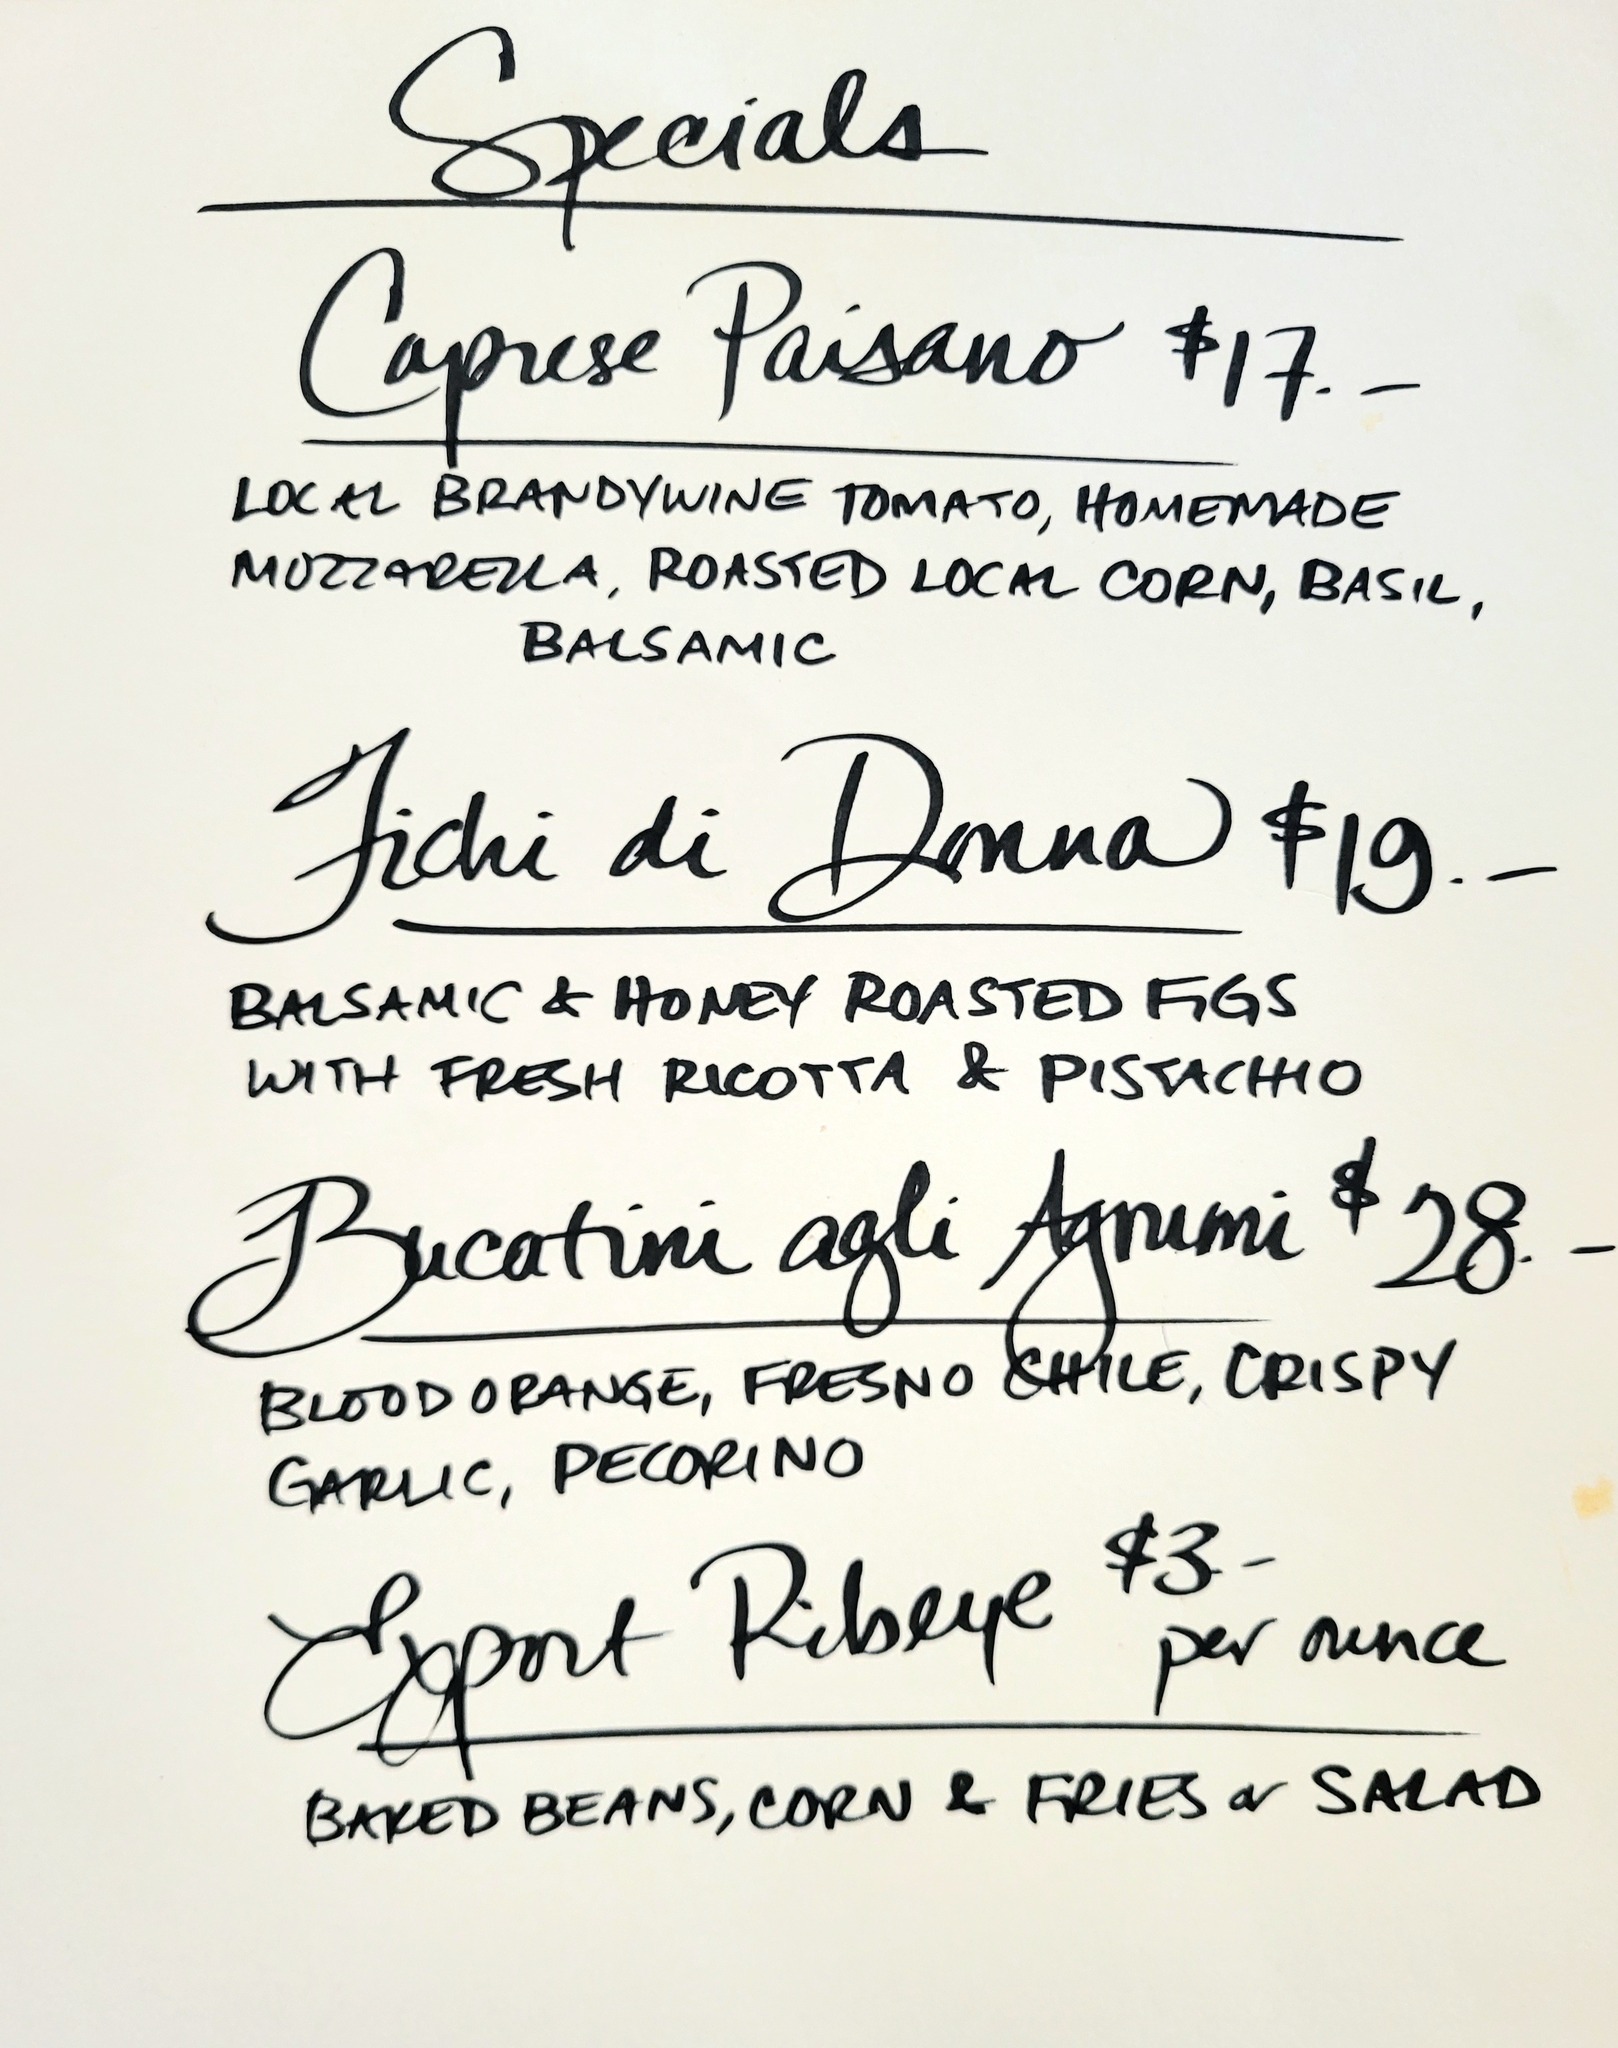 Specials
Caprese Paisano $17.-
LOCAL BRANDYWINE TOMATO, HOMEMADE
MOZZARELLA, ROASTED LOCAL CORN, BASIL,
BALSAMIC
Fichi di Donna $19.-
BALSAMIC & HONEY ROASTED FIGS
WITH FRESH RICOTTA & PISTACHIO
Bucatini agli Agrumi $28.-
BLOOD ORANGE, FRESNO CHILE, CRISPY
GARLIC, PECORINO
Export Ribeye $3.-
per ounce
BAKED BEANS, CORN & FRIES or SALAD